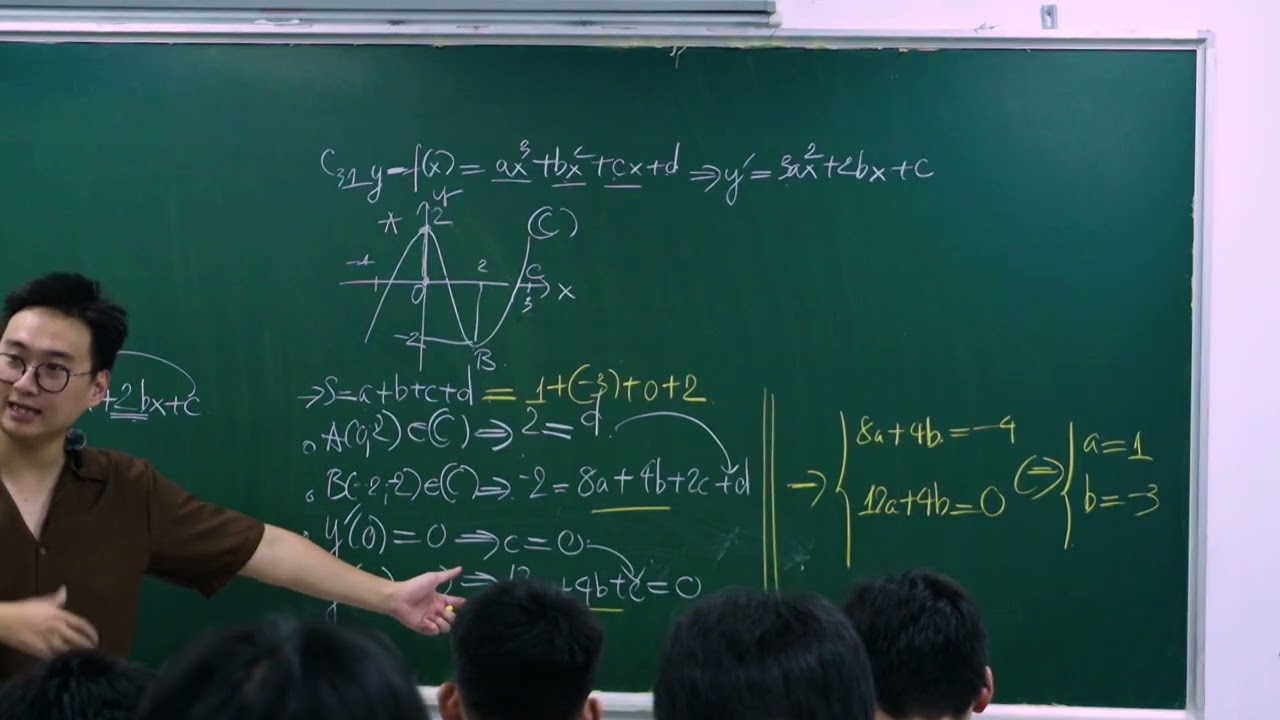 C31 y=f(x)=ax³+bx²+cx+d ⇒ y'=3ax²+2bx+c
y
A 2 (C)
-1 2 C
0 3 x
-2
B
+2bx+c
→S=a+b+c+d = 1+(-3)+0+2
∘ A(0,2)∈(C) ⇒ 2=d
∘ B(-2,-2)∈(C) ⇒ -2=8a+4b+2c+d
∘ y'(0)=0 ⇒ c=0
⇒ 12 +4b+c=0
→ { 8a+4b=-4
12a+4b=0
⇔ { a=1
b=-3